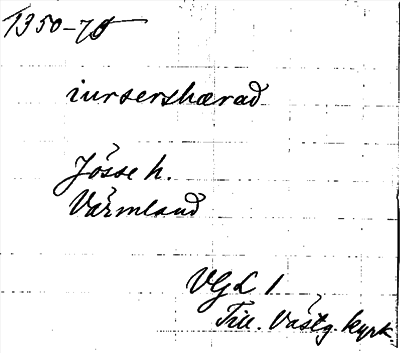 1350-70
iursershærað
Jösse h.
Värmland
VGL 1
Till. Västg. kyrk